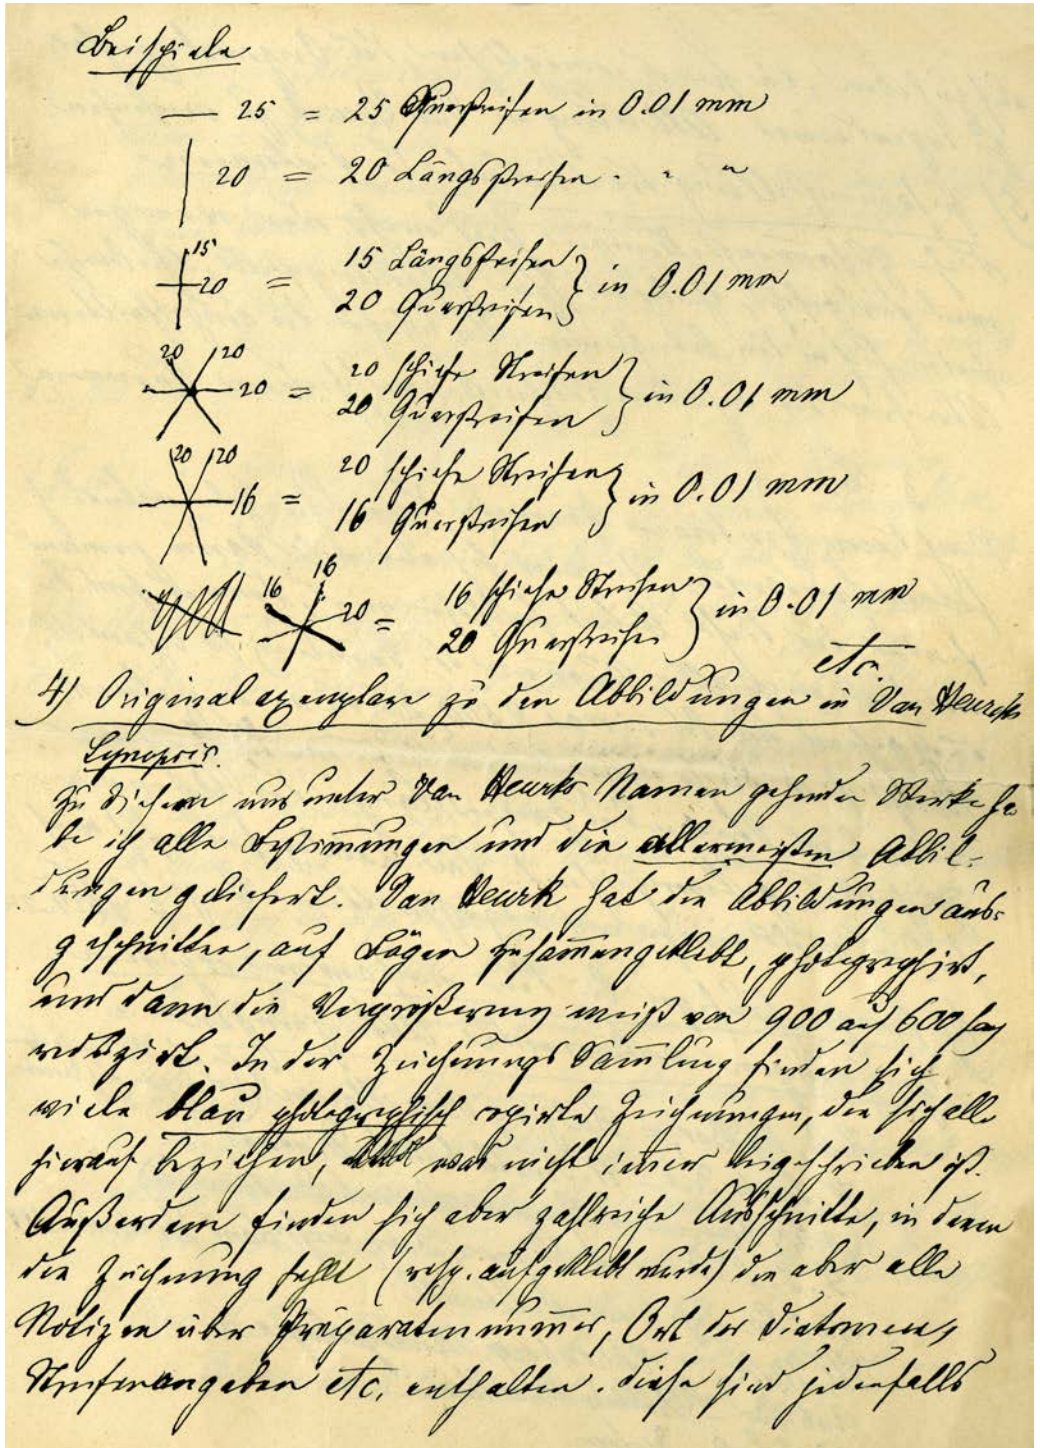 Beispiele
— 25 = 25 Querstreifen in 0.01 mm
| 20 = 20 Längsstreifen " " "
15
20 = 15 Längsstreifen
20 Querstreifen } in 0.01 mm
20 20
20 = 20 schiefe Streifen
20 Querstreifen } in 0.01 mm
20 20
16 = 20 schiefe Streifen
16 Querstreifen } in 0.01 mm
16 16
20 = 16 schiefe Streifen
20 Querstreifen } in 0.01 mm
etc.
4) Originalexemplare zu den Abbildungen in Van Heurcks
Synopsis.
Zu diesem unter Van Heurks Namen gehenden Werke ha
be ich alle Bestimmungen und die allermeisten Abbil-
dungen geliefert. Van Heurk hat die Abbildungen aus-
geschnitten, auf Bögen zusammengeklebt, photographirt,
und dann die Vergrößerung meist von 900 auf 600 fach
reduzirt. In der Zeichnungs Sammlung finden sich
viele blau photographisch copirte Zeichnungen, die sich alle
hierauf beziehen, was nicht immer beigeschrieben ist.
Außerdem finden sich aber zahlreiche Ausschnitte, in denen
die Zeichnung fehlt (resp. aufgeklebt wurde) die aber alle
Notizen über Präparatennummer, Ort der Diatomeen,
Streifenangaben etc. enthalten. Diese sind jedenfalls